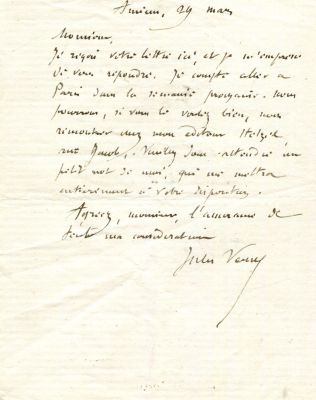 Amiens, 29 mars
Monsieur,
Je reçois votre lettre ici, et je m'empresse
de vous répondre. Je compte aller à
Paris dans la semaine prochaine. Nous
pourrons, si vous le voulez bien, nous
rencontrer chez mon éditeur Hetzel
rue Jacob. Veuillez donc attendre un
petit mot de moi, qui me mettra
entièrement à votre disposition.
Agréez, monsieur, l'assurance de
toute ma considération
Jules Verne